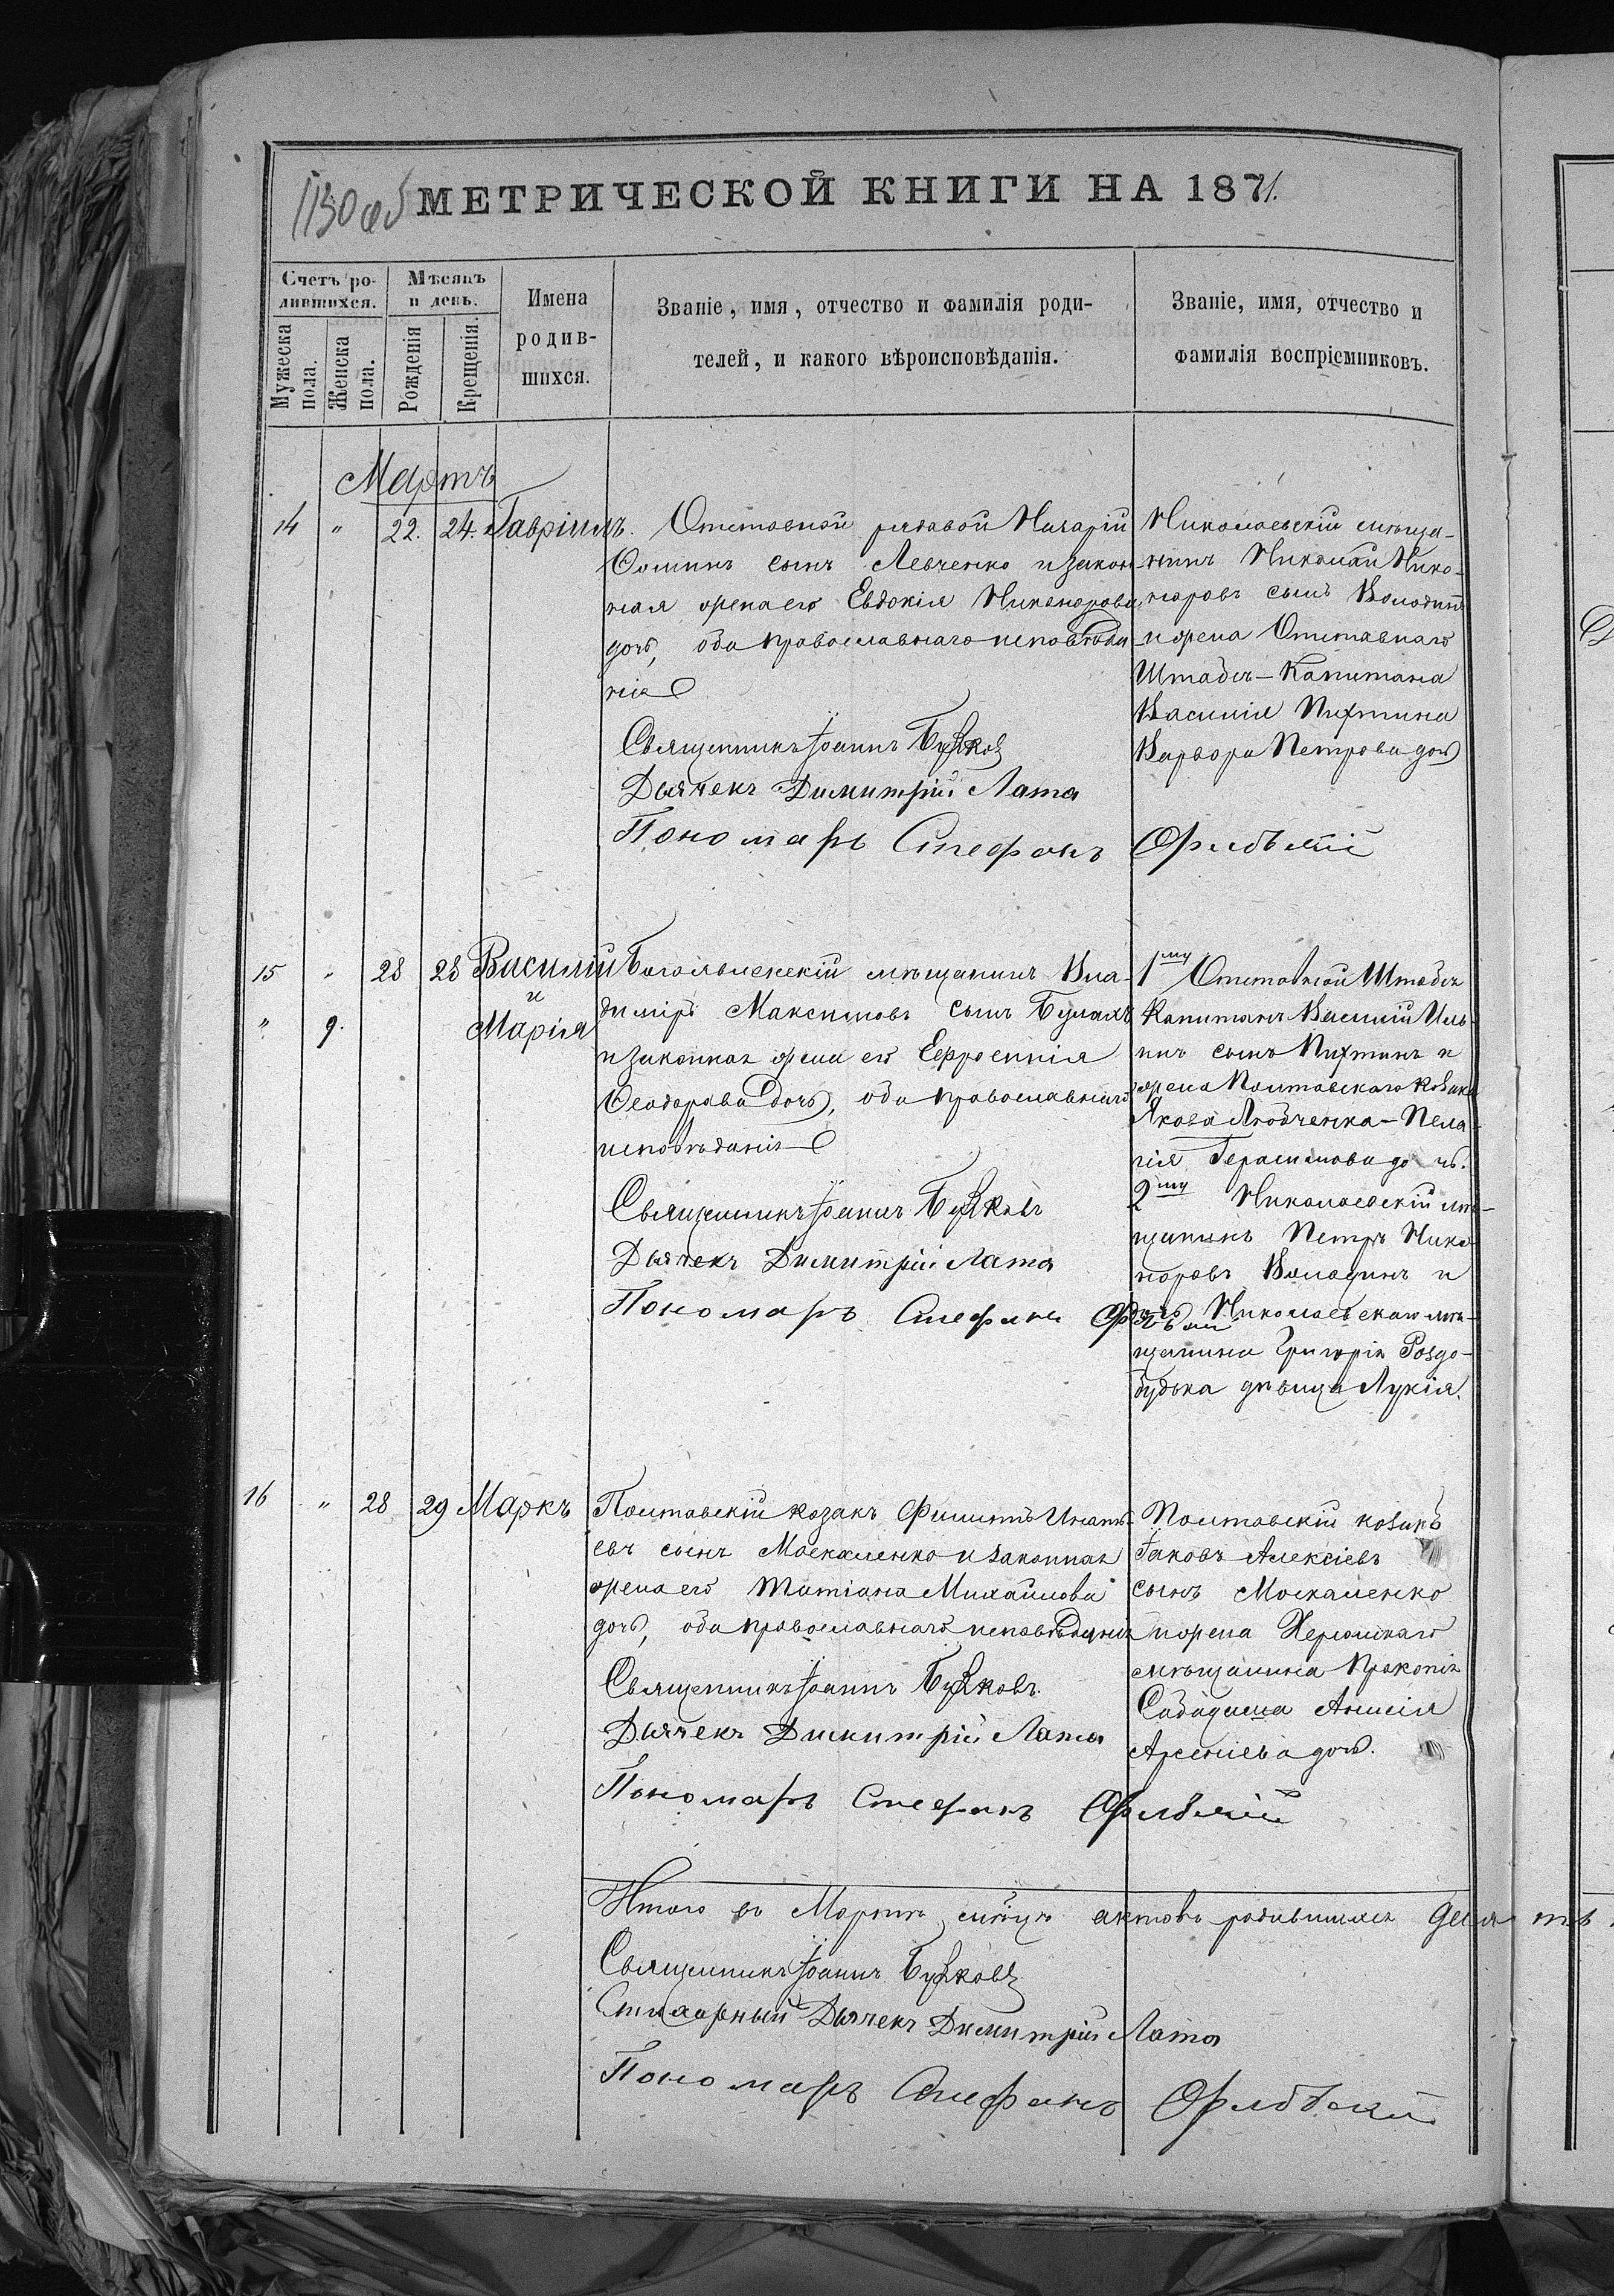 1130 об
МЕТРИЧЕСКОЙ КНИГИ НА 1871.
Счетъ ро-
дившихся.
Мужеска
пола.
Женска
пола.
Мѣсяцъ
и день.
Рожденія
Крещенія.
Имена
родив-
шихся.
Званіе, имя, отчество и фамилія роди-
телей, и какого вѣроисповѣданія.
Званіе, имя, отчество и
фамилія воспріемниковъ.
Мартъ
14 " 22. 24. Гавріилъ.
Отставной рядовой Назарій
Ѳоминъ сынъ Левченко и закон
ная жена его Евдокія Никанорова
дочь, оба православнаго исповѣда
нія
Священникъ Іоаннъ Бузковъ
Дьячекъ Димитрій Лата
Пономарь Стефанъ
Николаевскій мѣща-
нинъ Николай Ника-
норовъ сынъ Володинъ
и жена Отставнаго
Штабсъ-Капитана
Василія Пихтина
Варвара Петрова дочь
15 " 28 28 Василій
и
" 9. Марія
Богоявленскій мѣщанинъ Вла-
диміръ Максимовъ сынъ
и законная жена его Евфросинія
Ѳеодорова дочь, оба православнаго
исповѣданія
Священникъ Іоаннъ Бузковъ
Дьячекъ Димитрій Лата
Пономарь Стефанъ
1му Отставной Штабсъ
Капитанъ Василій Иль-
инъ сынъ Пихтинъ и
жена Полтавскаго козака
Якова Любченка-Пела-
гія Герасимова дочь.
2му Николаевскій мѣ-
щанинъ Петръ Ника
норовъ Володинъ и
дочь Николаевскаго мѣ-
щанина Григорія Роздо-
будька дѣвица Лукія.
16 " 28 29 Маркъ
Полтавскій козакъ Филиппъ Игнать-
евъ сынъ Москаленко и законная
жена его Татіана Михайлова
дочь, оба православнаго исповѣданія
Священникъ Іоаннъ Бузковъ.
Дьячекъ Димитрій Лата
Пономарь Стефанъ
Полтавскій козакъ
Іаковъ Алексіевъ
сынъ Москаленко
и жена Херсонскаго
мѣщанина Прокопія
Арсеніева дочь.
Итого въ Мартѣ мѣсяцѣ актовъ родившихся девять
Священникъ Іоаннъ Бузковъ
Стихарный Дьячекъ Димитрій Лата
Пономарь Стефанъ